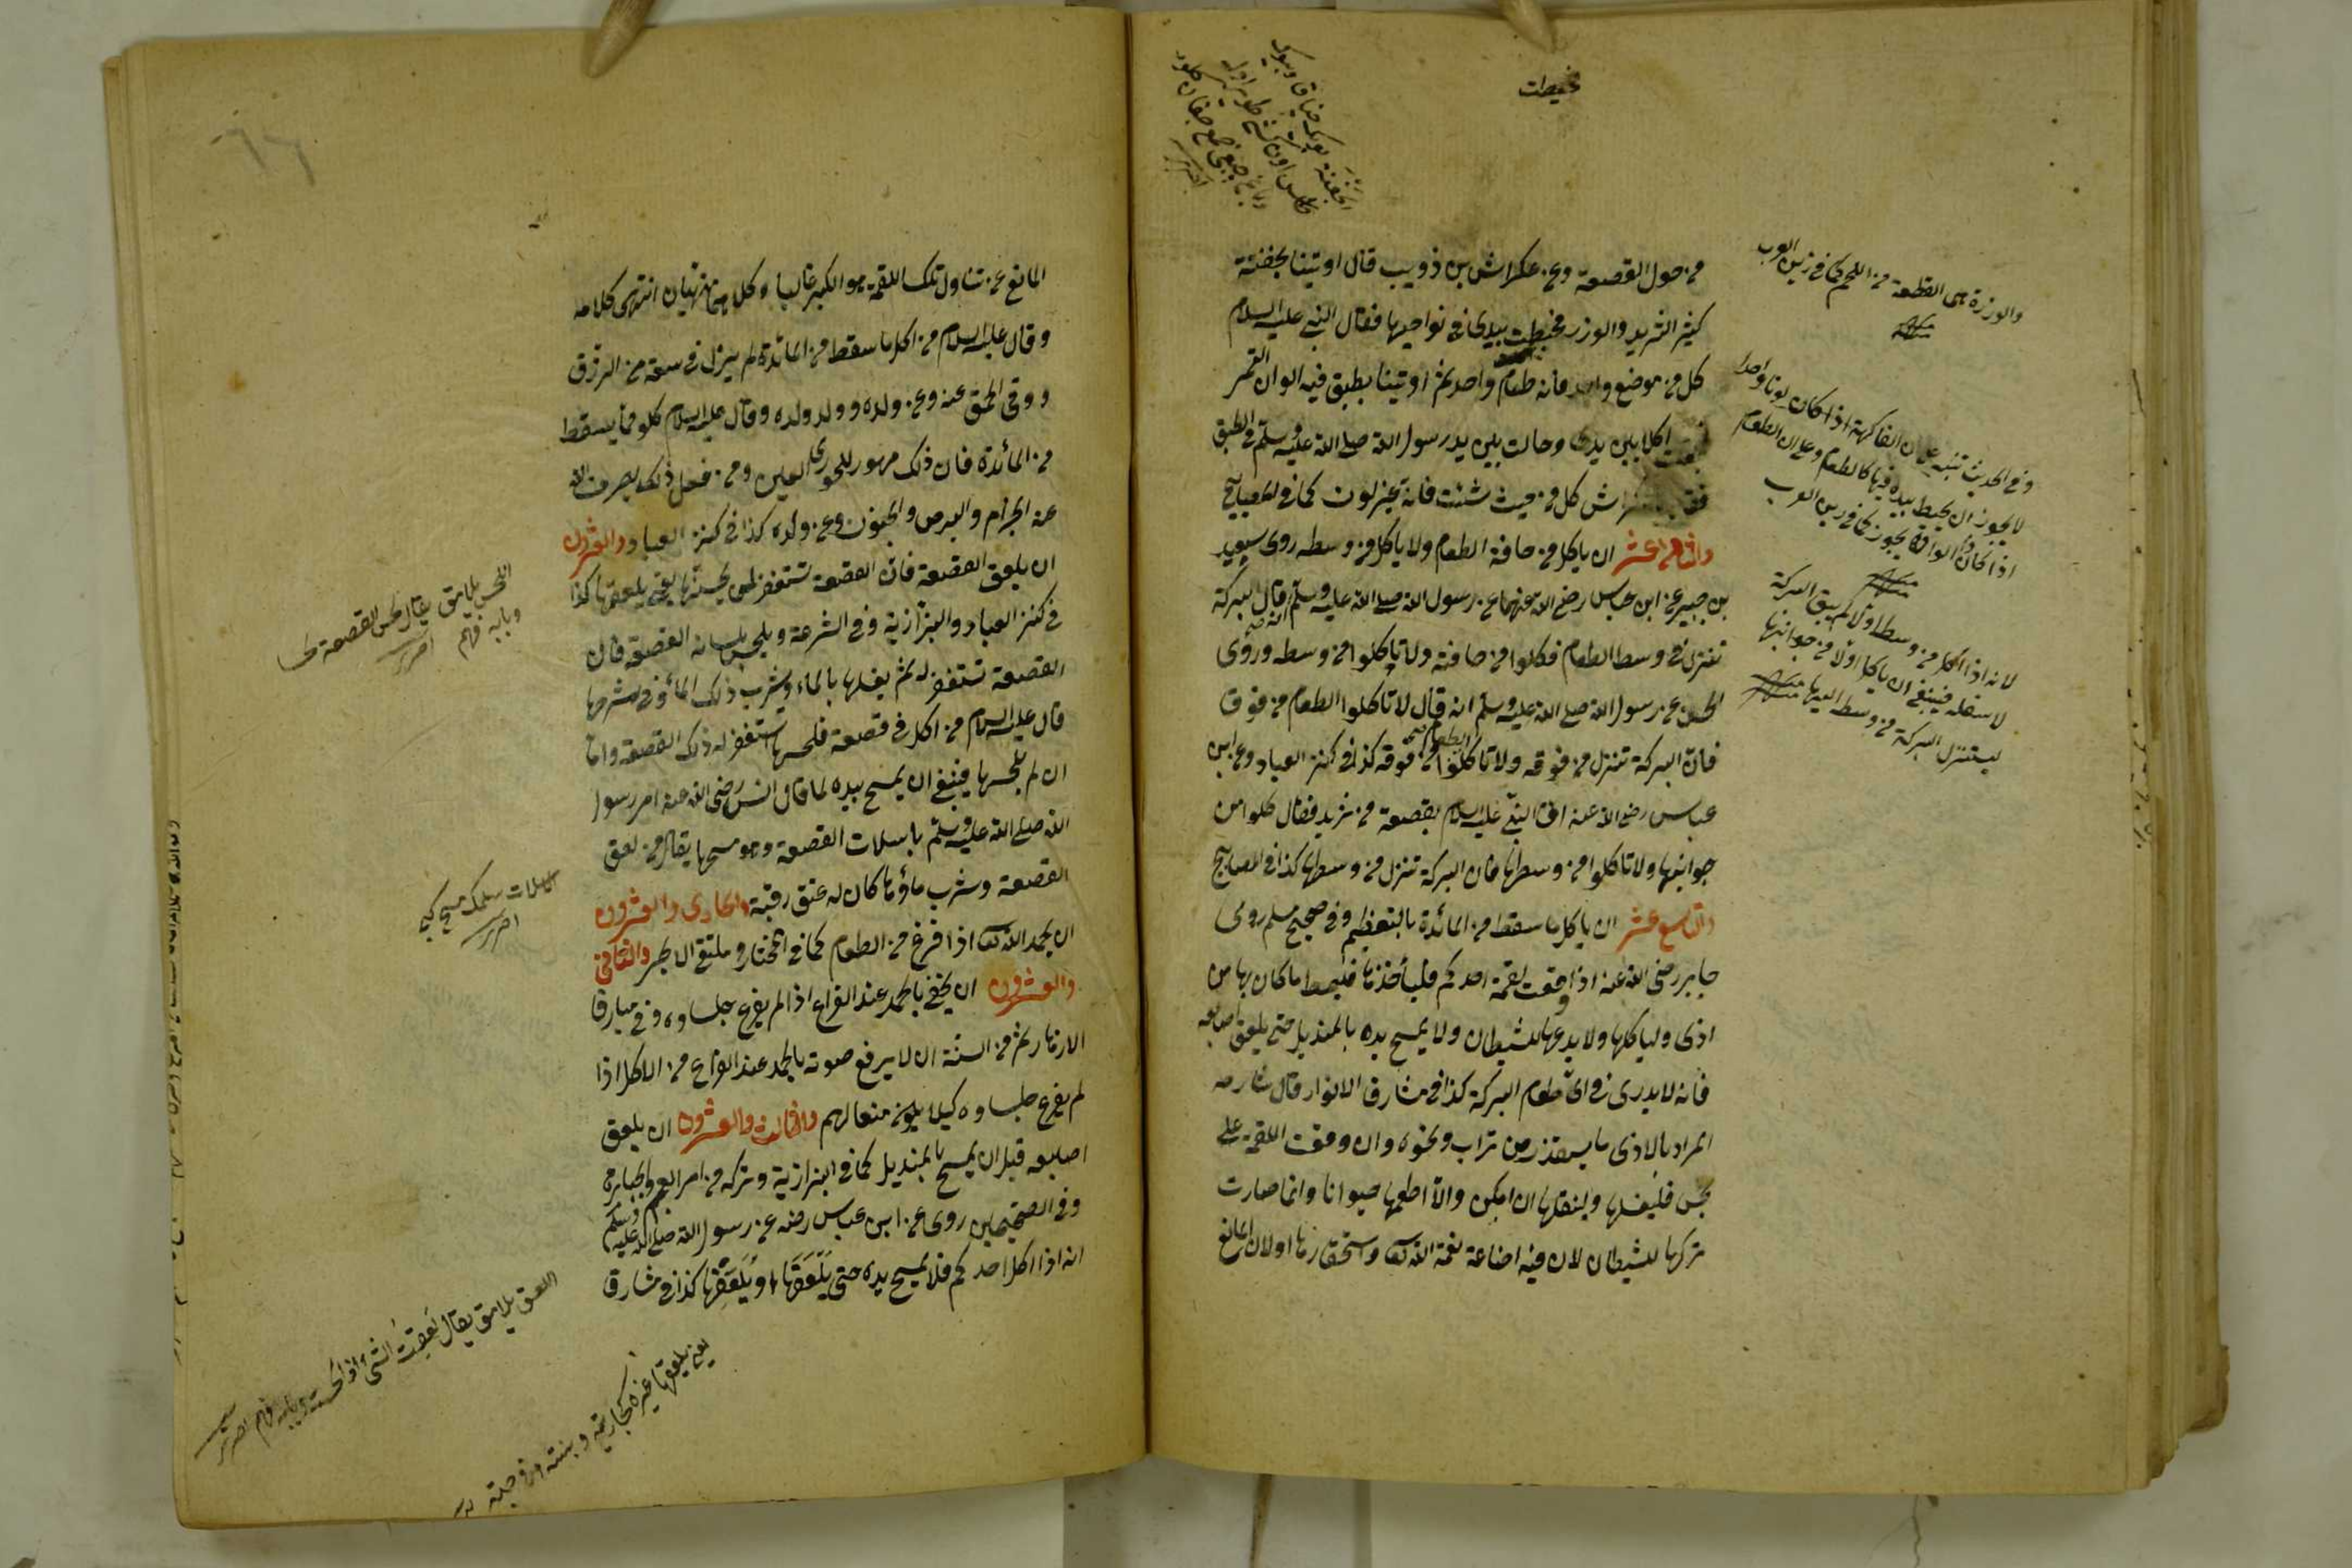 فخبطت
من حول القصعة وعن عكراش بن ذويب قال اوتينا بجفنة
كثير الثريد والوذر فخبطت بيدى فى نواحيها فقال النبى عليه السلام
كل من موضع واحد فانه طعام واحد ثم اوتينا بطبق فيه الوان التمر
اكل بين يدى وجالت بين يد رسول الله صلى الله عليه وسلم فى الطبق
عكراش كل من حيث شئت فانه غير لون كما فى المصابيح
والثامن عشر ان ياكل من حافة الطعام ولا ياكل من وسطه روى سعيد
بن جبير عن ابن عباس رضى الله عنهما عن رسول الله صلى الله عليه وسلم انه قال البركة
تنزل فى وسط الطعام فكلوا من حافته ولا تاكلوا من وسطه وروى
الحسن عن رسول الله صلى الله عليه وسلم انه قال لا تاكلوا الطعام من فوق
فان البركة تنزل من فوقه ولا تاكلوا الطعام من فوقه كذا فى كنز العباد وعن ابن
عباس رضى الله عنه اتى النبى عليه السلام بقصعة من ثريد فقال كلوا من
جوانبها ولا تاكلوا من وسطها فان البركة تنزل من وسطها كذا فى المصابيح
والتاسع عشر ان ياكل ما سقط من المائدة بالتعظيم وفى صحيح مسلم روى
جابر رضى الله عنه اذا وقعت لقمة احدكم فليأخذها فليمط ما كان بها من
اذى ولياكلها ولا يدعها للشيطان ولا يمسح يده بالمنديل حتى يلعق اصابعه
فانه لا يدرى فى اى طعام البركة كذا فى مشارق الانوار قال شارحه
المراد بالاذى ما يستقذر من تراب ونحوه وان وقعت اللقمة على
نجس فليغسلها ولينقلها ان امكن والا اطعمها حيوانا وانما صارت
تركها للشيطان لان فيه اضاعة نعمة الله تعالى واستحقارها اولان المانع
والوذرة هى القطعة من اللحم كما فى زين العرب
منه
وفى الحديث تنبيه على ان الفاكهة اذا كان لونا واحدا
لا يجوز ان يخبط بيده فيها كالطعام وعلى ان الطعام
اذا كان ذا الوان يجوز كما فى زين العرب
منه
لانه اذا اكل من وسطه اولا لم يبق البركة
لاسفله فينبغى ان ياكل اولا من جوانبها
ليستنزل البركة من وسط اليها منه
المانع عن تناول تلك اللقمة هو الكبر غالبا وكل منهما منهيان انتهى كلامه
وقال عليه السلام من اكل ما سقط من المائدة لم يزل فى سعة من الرزق
ووقى الحمق عنه وعن ولده وولد ولده وقال عليه السلام كلوا ما يسقط
من المائدة فان ذلك مهور للحور العين ومن فعل ذلك يصرف الله
عنه الجذام والبرص والجنون وعن ولده كذا فى كنز العباد والعشرون
ان يلعق القصعة فان القصعة تستغفر لمن يلحسها يعنى يلعقها كذا
فى كنز العباد والبزازية وفى الشرعة ويلحس بلسانه القصعة فان
القصعة تستغفر له ثم يغسلها بالماء ويشرب ذلك الماء وفى شرحها
قال عليه السلام من اكل فى قصعة فلحسها استغفر له ذلك القصعة واما
ان لم يلحسها فينبغى ان يمسح بيده لما قال انس رضى الله عنه امر رسول
الله صلى الله عليه وسلم باسلات القصعة وهو مسحها يقال من لعق
القصعة وشرب ماؤها كان له عتق رقبة والحادى والعشرون
ان يحمد الله تعالى اذا فرغ من الطعام كما فى المختار وملتقى الابحر والثانى
والعشرون ان يخفى بالحمد عند الفراغ اذا لم يفرغ جلساؤه وفى مبارق
الازهار ثم من السنة ان لا يرفع صوته بالحمد عند الفراغ من الاكل اذا
لم يفرغ جلساؤه كيلا يكون منعا لهم والثالث والعشرون ان يلعق
اصابعه قبل ان يمسح بالمنديل كما فى البزازية وتركه من امر العجم والجبابرة
وفى الصحيحين روى عن ابن عباس رضه عن رسول الله صلى الله عليه وسلم
انه اذا اكل احدكم فلا يمسح يده حتى يَلْعَقَها او يُلْعِقَها كذا فى مشارق
اللحس يلامق يقال لحس القصعة
وبابه فهم
اخترى
اسلات سلمك مسح كبى
اخترى
اللعق يلامق يقال لعقت الشئ اذا لحسته وبابه فهم اخترى
يعنى يلعقها غيره كجاريته وبنته وزوجته
٦٦